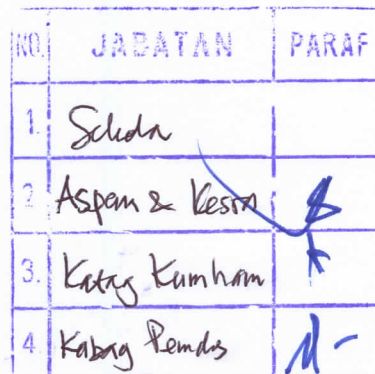 NO. JABATAN PARAF
1. Sekda
2. Aspem & Kesra
3. Kabag Kumham
4. Kabag Pemdes